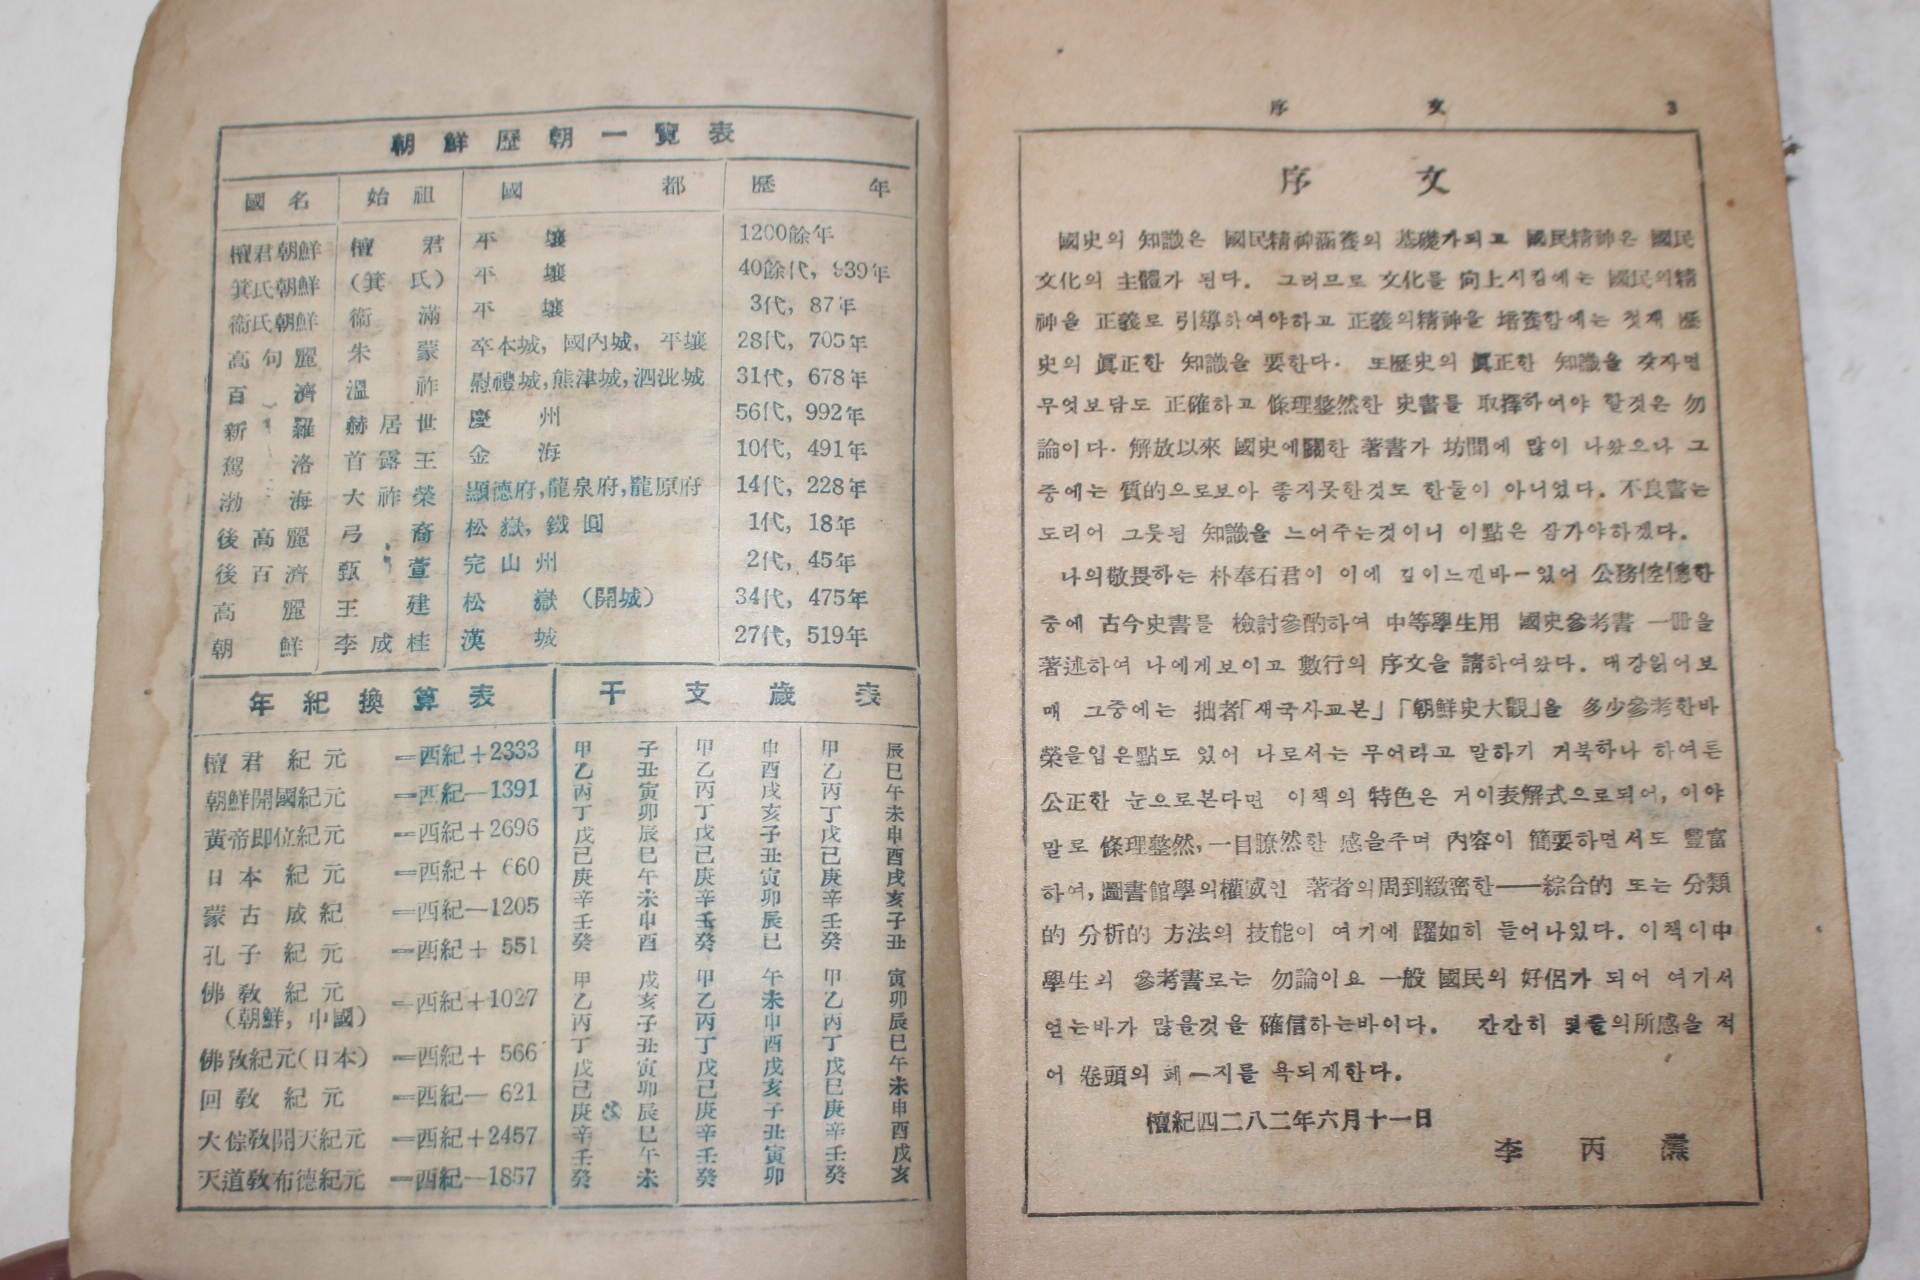 朝鮮歷朝一覽表
國名 始祖 國都 歷年
檀君朝鮮 檀君 平壤 1200餘年
箕氏朝鮮 (箕氏) 平壤 40餘代, 939年
衞氏朝鮮 衞滿 平壤 3代, 87年
高句麗 朱蒙 卒本城, 國內城, 平壤 28代, 705年
百濟 溫祚 慰禮城, 熊津城, 泗沘城 31代, 678年
新羅 赫居世 慶州 56代, 992年
駕洛 首露王 金海 10代, 491年
渤海 大祚榮 顯德府, 龍泉府, 龍原府 14代, 228年
後高麗 弓裔 松嶽, 鐵圓 1代, 18年
後百濟 甄萱 完山州 2代, 45年
高麗 王建 松嶽 (開城) 34代, 475年
朝鮮 李成桂 漢城 27代, 519年
年紀換算表
檀君紀元 =西紀+2333
朝鮮開國紀元 =西紀-1391
黃帝即位紀元 =西紀+2696
日本紀元 =西紀+ 660
蒙古成紀 =西紀-1205
孔子紀元 =西紀+ 551
佛敎紀元 (朝鮮, 中國) =西紀+1027
佛敎紀元(日本) =西紀+ 566
回敎紀元 =西紀- 621
大倧敎開天紀元 =西紀+2457
天道敎布德紀元 =西紀-1857
干支歲表
甲子 甲申 甲辰
乙丑 乙酉 乙巳
丙寅 丙戌 丙午
丁卯 丁亥 丁未
戊辰 戊子 戊申
己巳 己丑 己酉
庚午 庚寅 庚戌
辛未 辛卯 辛亥
壬申 壬辰 壬子
癸酉 癸巳 癸丑
甲戌 甲午 甲寅
乙亥 乙未 乙卯
丙子 丙申 丙辰
丁丑 丁酉 丁巳
戊寅 戊戌 戊午
己卯 己亥 己未
庚辰 庚子 庚申
辛巳 辛丑 辛酉
壬午 壬寅 壬戌
癸未 癸卯 癸亥
序文 3
序文
國史의 知識은 國民精神涵養의 基礎가되고 國民精神은 國民
文化의 主體가 된다. 그러므로 文化를 向上시킴에는 國民의精
神을 正義로 引導하여야하고 正義의精神을 培養함에는 첫재 歷
史의 眞正한 知識을 要한다. 또歷史의 眞正한 知識을 갖자면
무엇보담도 正確하고 條理整然한 史書를 取擇하여야 할것은 勿
論이다. 解放以來 國史에關한 著書가 坊間에 많이 나왔으나 그
중에는 質的으로보아 좋지못한것도 한둘이 아니었다. 不良書는
도리어 그릇된 知識을 느어주는것이니 이點은 삼가야하겠다.
나의敬畏하는 朴奉石君이 이에 깊이느낀바ㅡ있어 公務倥偬한
중에 古今史書를 檢討參酌하여 中等學生用 國史參考書 一冊을
著述하여 나에게보이고 數行의 序文을 請하여왔다. 대강읽어보
매 그중에는 拙者「새국사교본」「朝鮮史大觀」을 多少參考한바
榮을입은點도 있어 나로서는 무어라고 말하기 거북하나 하여튼
公正한 눈으로본다면 이책의 特色은 거이表解式으로되어, 이야
말로 條理整然, 一目瞭然한 感을주며 內容이 簡要하면서도 豐富
하여, 圖書館學의權威인 著者의周到緻密한——綜合的 또는 分類
的 分析的 方法의 技能이 여기에 躍如히 들어나있다. 이책이中
學生의 參考書로는 勿論이요 一般 國民의 好侶가 되어 여기서
얻는바가 많을것을 確信하는바이다. 간간히 몇줄의所感을 적
어 卷頭의 한一지를 욕되게한다.
檀紀四二八二年六月十一日
李丙燾